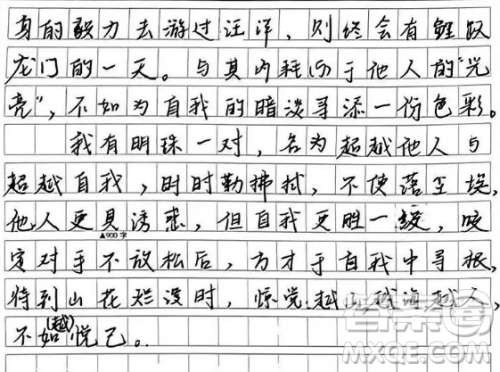 身的毅力去游过汪洋，则终会有鲤跃
龙门的一天。与其内耗于他人的“光
亮”，不如为自我的暗淡寻添一份色彩。
我有明珠一对，名为超越他人与
超越自我，时时勤拂拭，不使落尘埃，
他人更具诱惑，但自我更胜一缓，咬
▲900字
定对手不放松后，方才于自我中寻根，
待到山花烂漫时，惊觉越山越海越人，
不如(越)悦己。
答案圈
MXQE.COM